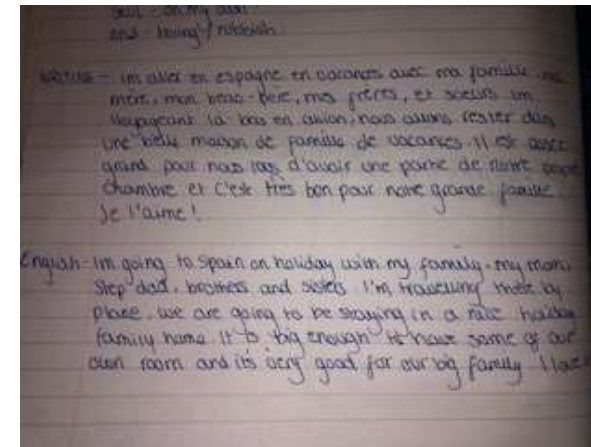 and - living / rubbish
WRITING - im aller en espagne en vacances avec ma famille - ma
mère, mon beau-père, mes frères, et soeurs im
voyageant là bas en avion, nous allons rester dans
une belle maison de famille de vacances. Il est assez
grand pour nous d'avoir une partie de notre
chambre et c'est très bon pour notre grande famille
Je l'aime!
English - im going to spain on holiday with my family - my mom,
step dad, brothers and sisters. I'm travelling there by
plane. we are going to be staying in a nice holiday
family home. It is big enough to have some of our
own room and its very good for our big family I love